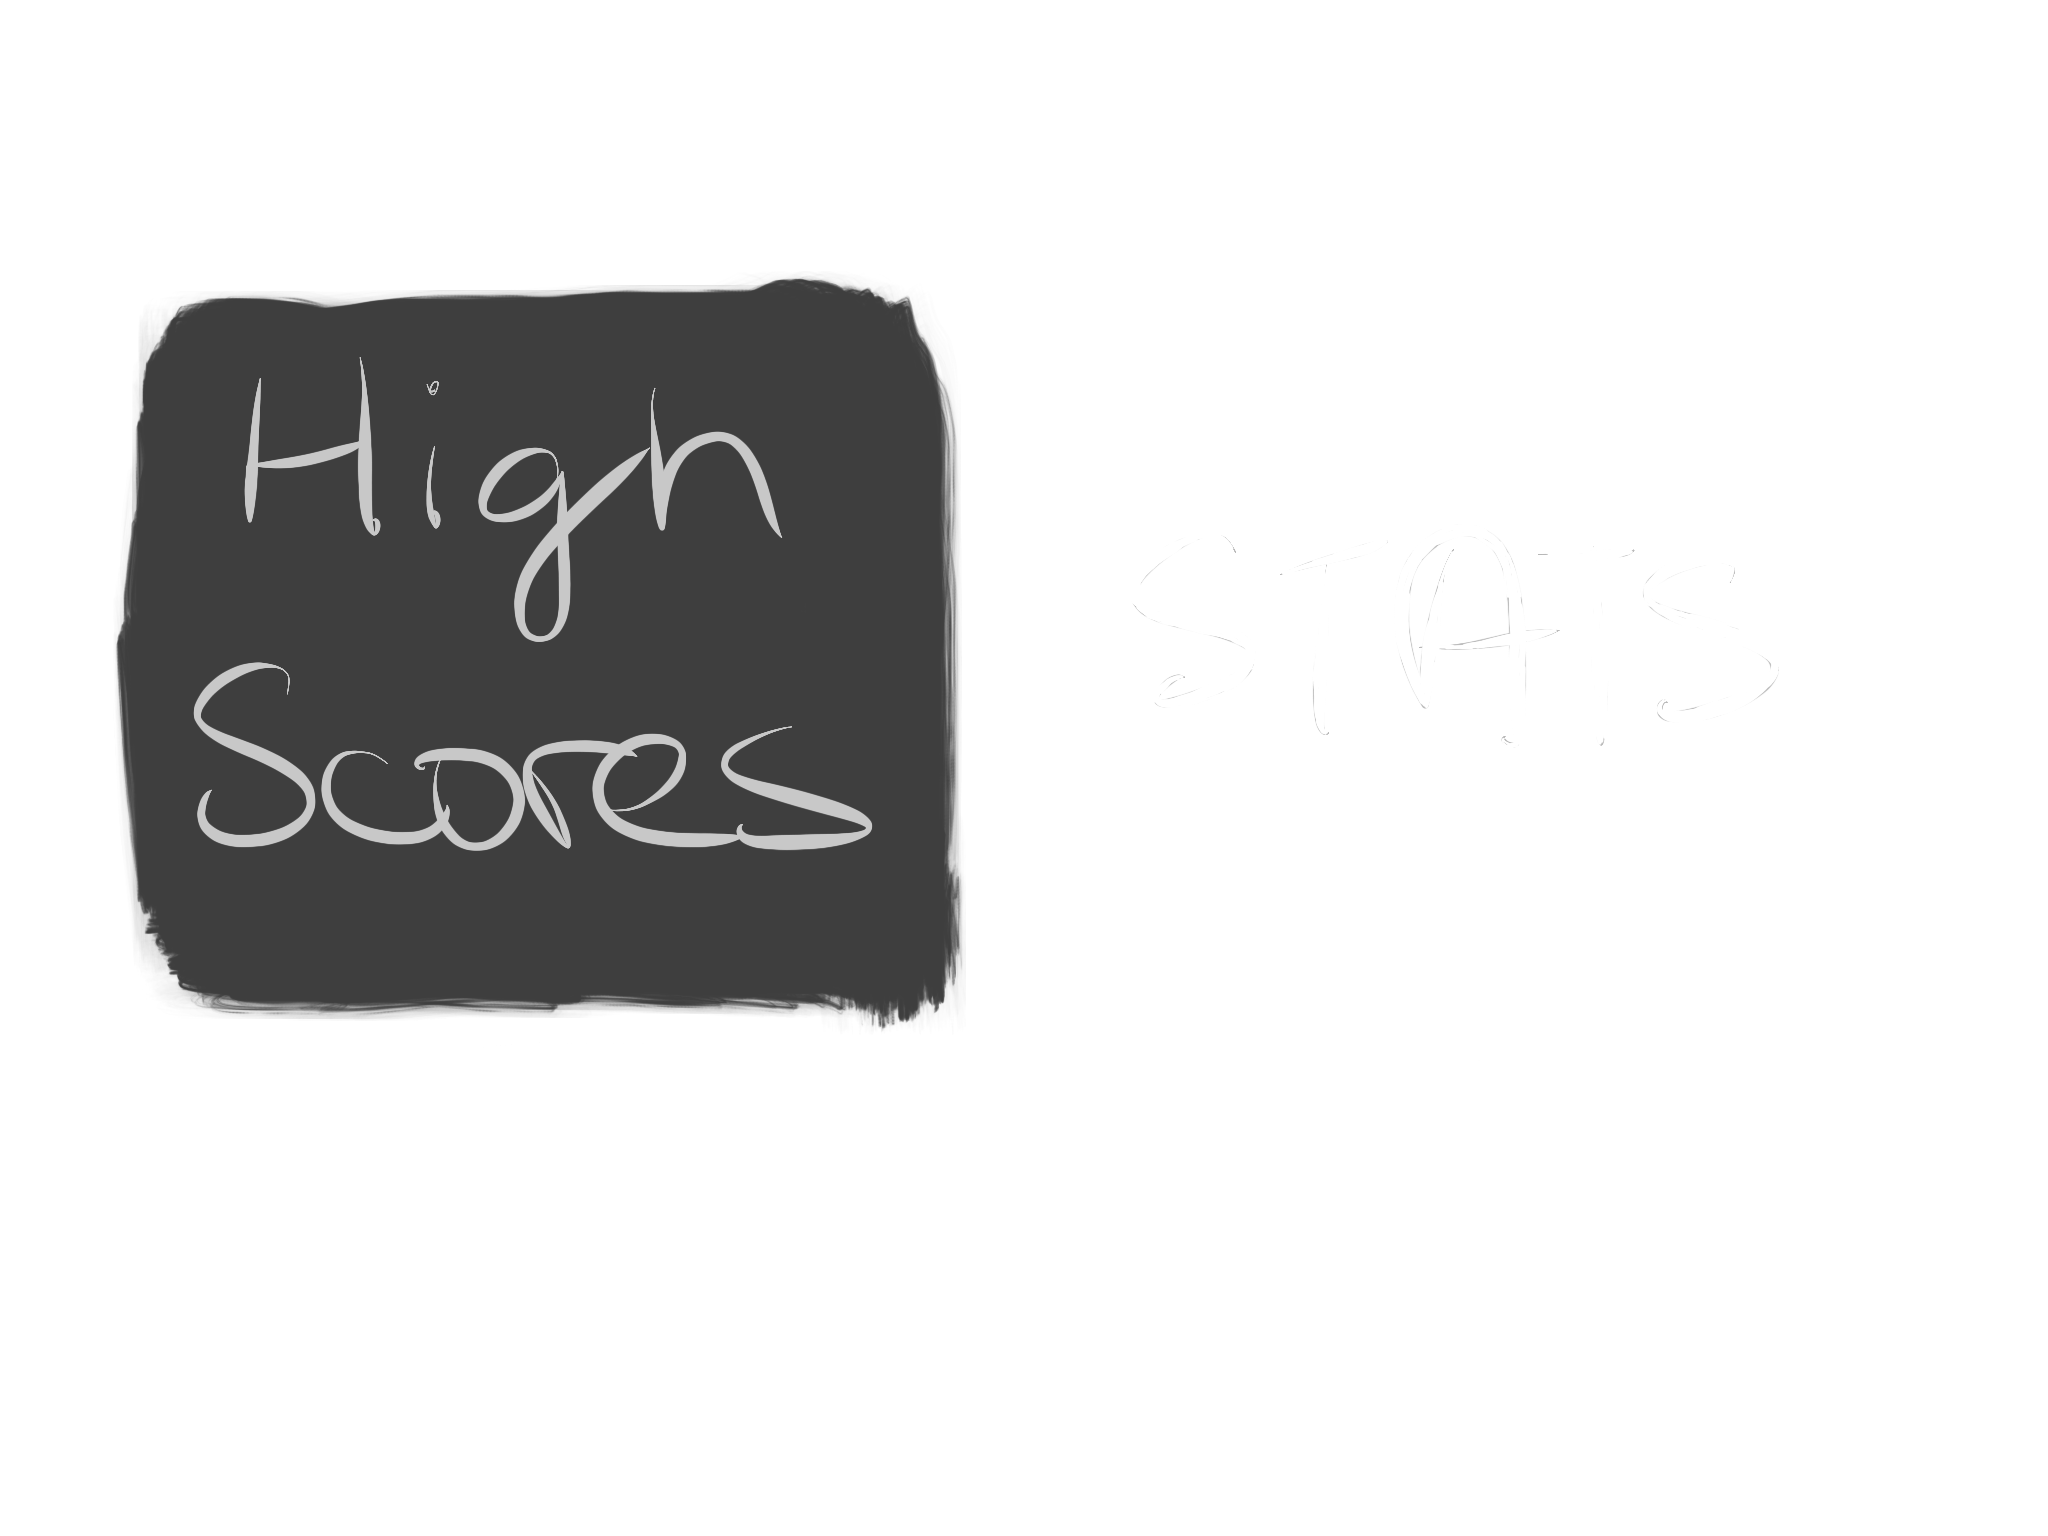 High
Scores
STATS